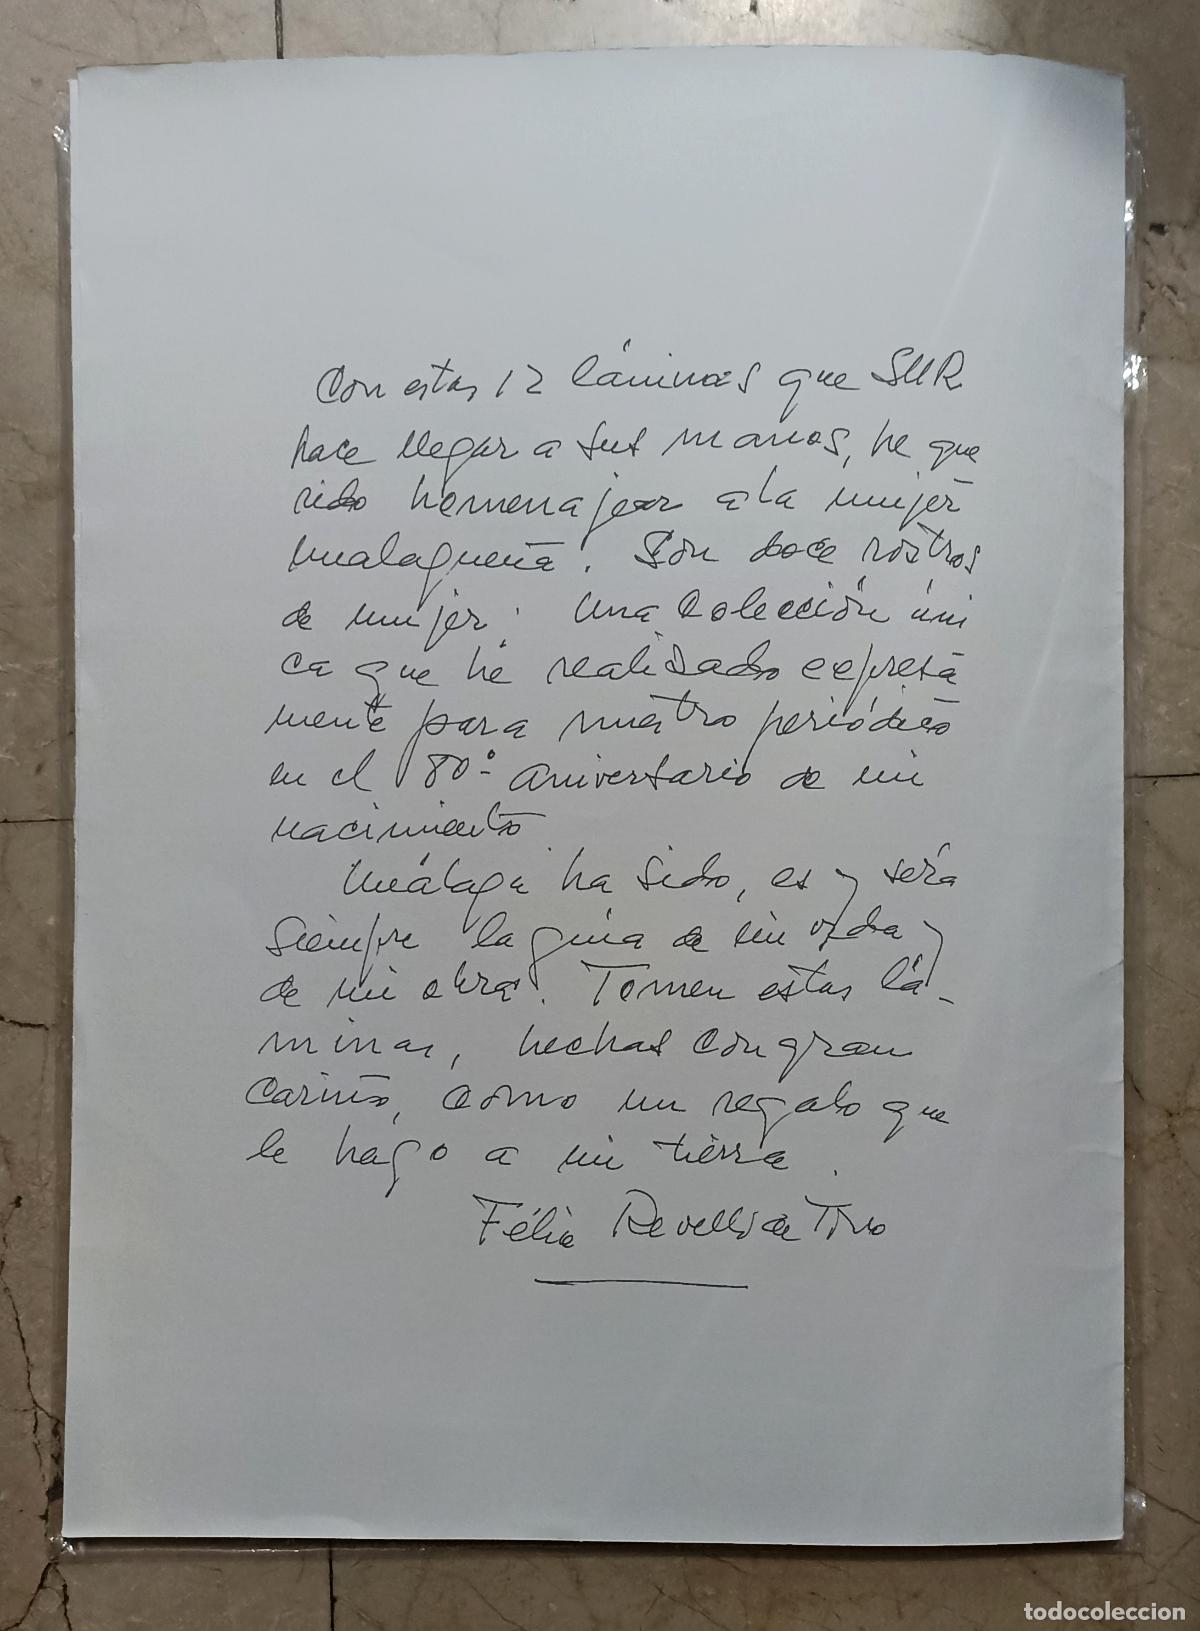 Con estas 12 láminas que SUR
hace llegar a sus manos, he que
rido homenajear a la mujer
malagueña. Son doce rostros
de mujer. Una colección úni
ca que he realizado expresa
mente para nuestro periódico
en el 80º aniversario de mi
nacimiento.
Málaga ha sido, es y será
siempre la guía de mi vida y
de mi obra. Tomen estas lá-
minas, hechas con gran
cariño, como un regalo que
le hago a mi tierra.
Félix Revello de Toro
todocoleccion